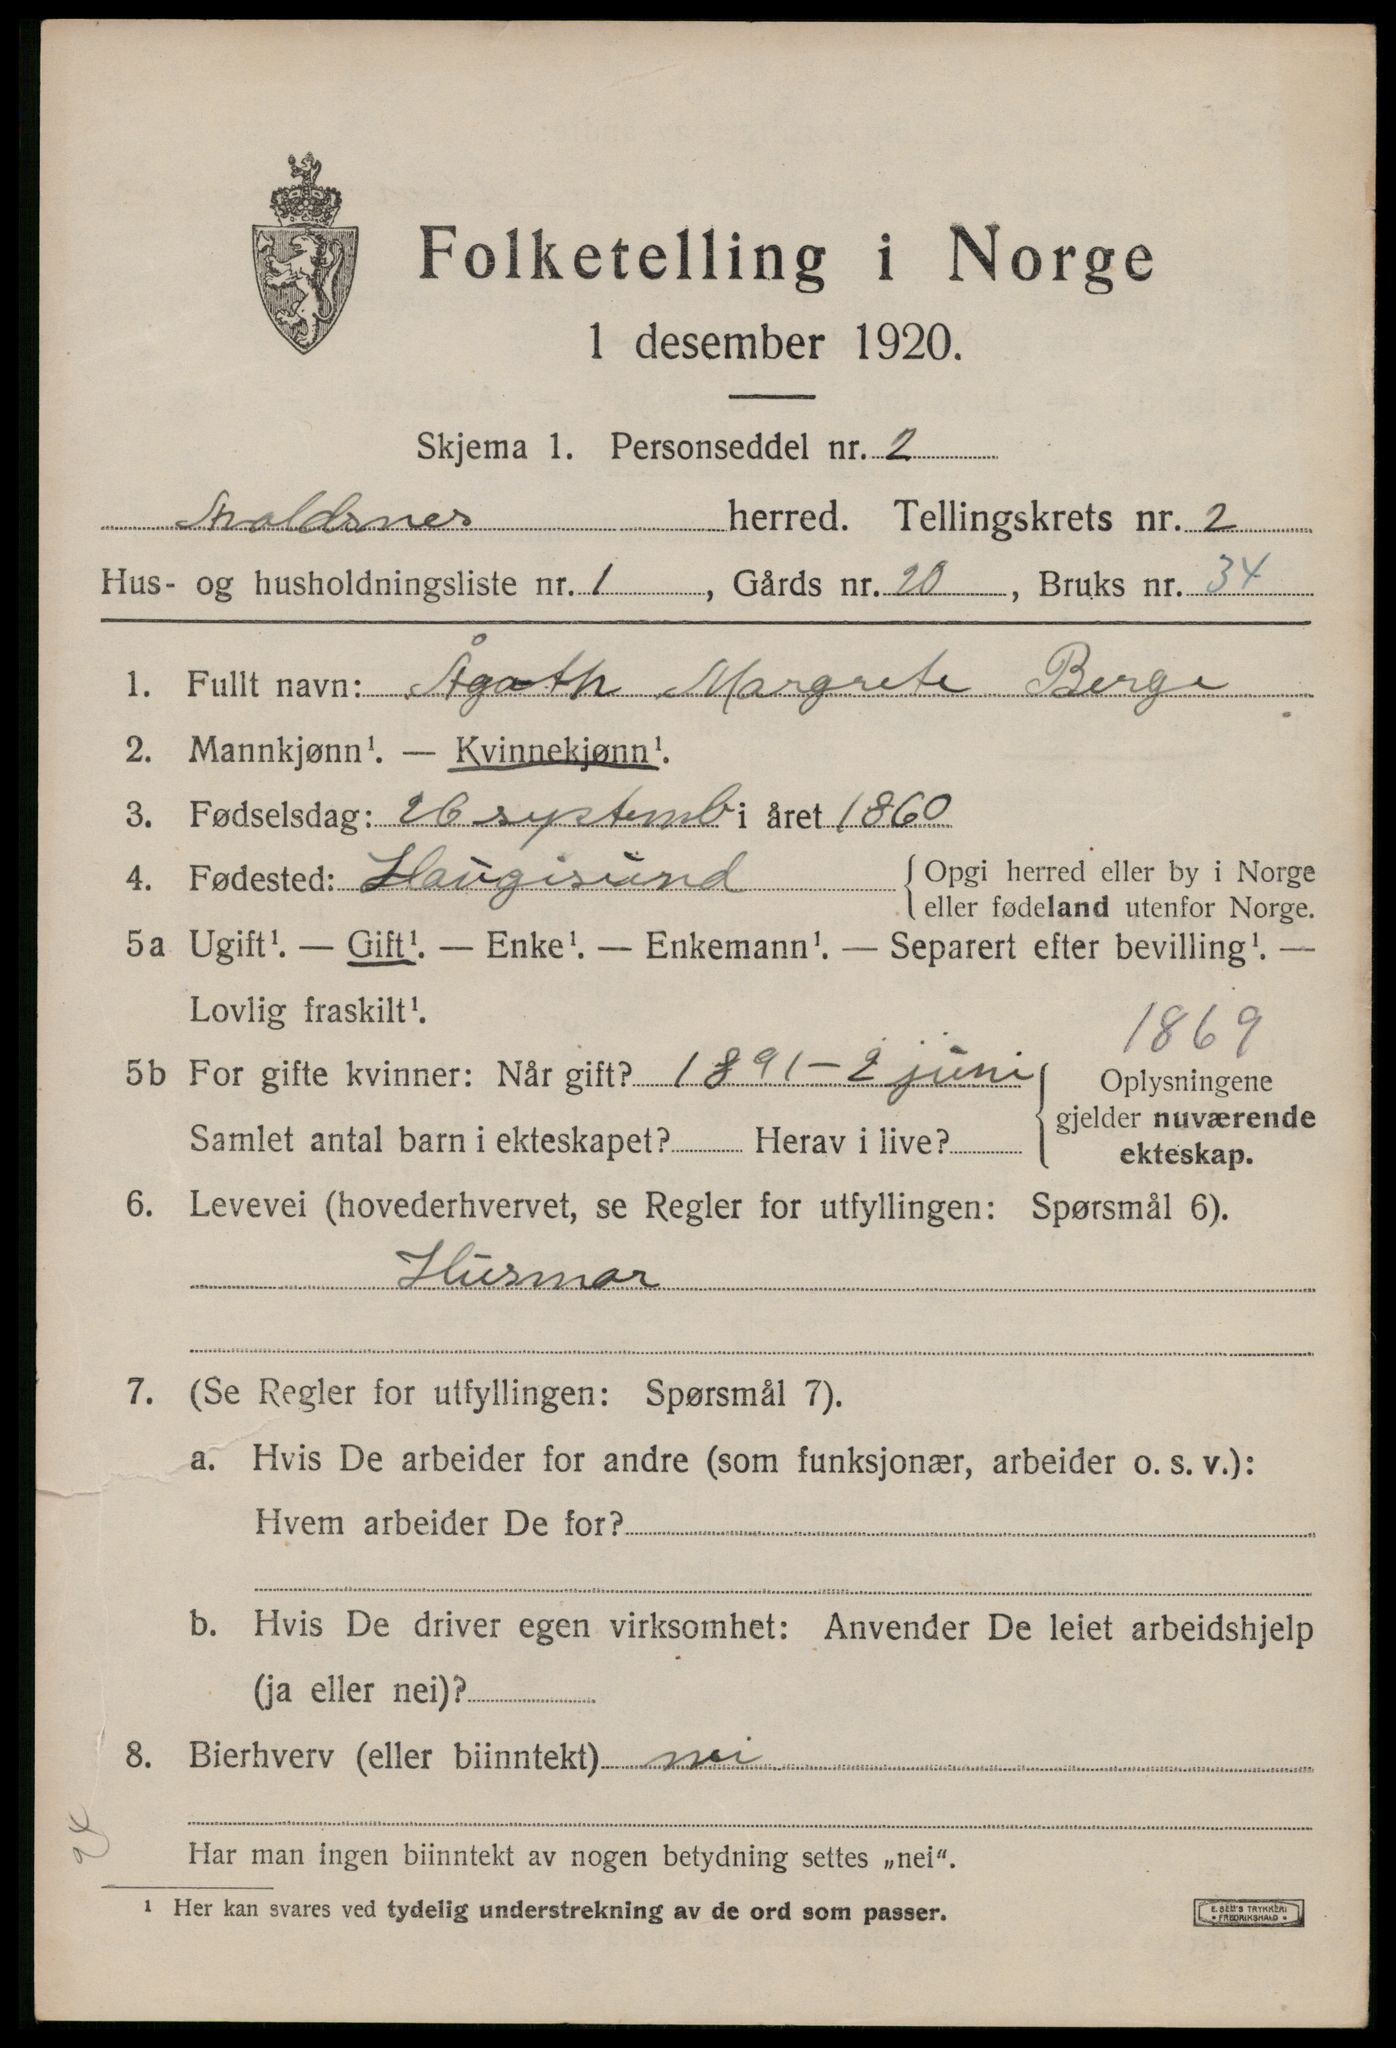 Folketelling i Norge
1 desember 1920.
Skjema 1. Personseddel nr. 2
herred. Tellingskrets nr. 2
Hus- og husholdningsliste nr. 1, Gårds nr. 20, Bruks nr. 34
1. Fullt navn: Ågath Margrete Berge
2. Mannkjønn¹. — Kvinnekjønn¹.
3. Fødselsdag: 26 septemb i året 1860
4. Fødested: Haugisund {Opgi herred eller by i Norge
eller fødeland utenfor Norge.
5a Ugift¹. — Gift¹. — Enke¹. — Enkemann¹. — Separert efter bevilling¹. —
Lovlig fraskilt¹.
1869
5b For gifte kvinner: Når gift? 1891 - 2 juni { Oplysningene
gjelder nuværende
Samlet antal barn i ekteskapet? Herav i live?
ekteskap.
6. Levevei (hovederhvervet, se Regler for utfyllingen: Spørsmål 6).
Husmor
7. (Se Regler for utfyllingen: Spørsmål 7).
a. Hvis De arbeider for andre (som funksjonær, arbeider o. s. v.):
Hvem arbeider De for?
b. Hvis De driver egen virksomhet: Anvender De leiet arbeidshjelp
(ja eller nei)?
8. Bierhverv (eller biinntekt) nei
Har man ingen biinntekt av nogen betydning settes „nei“.
¹ Her kan svares ved tydelig understrekning av de ord som passer.
E. SEM'S TRYKKERI
• FREDRIKSHALD •